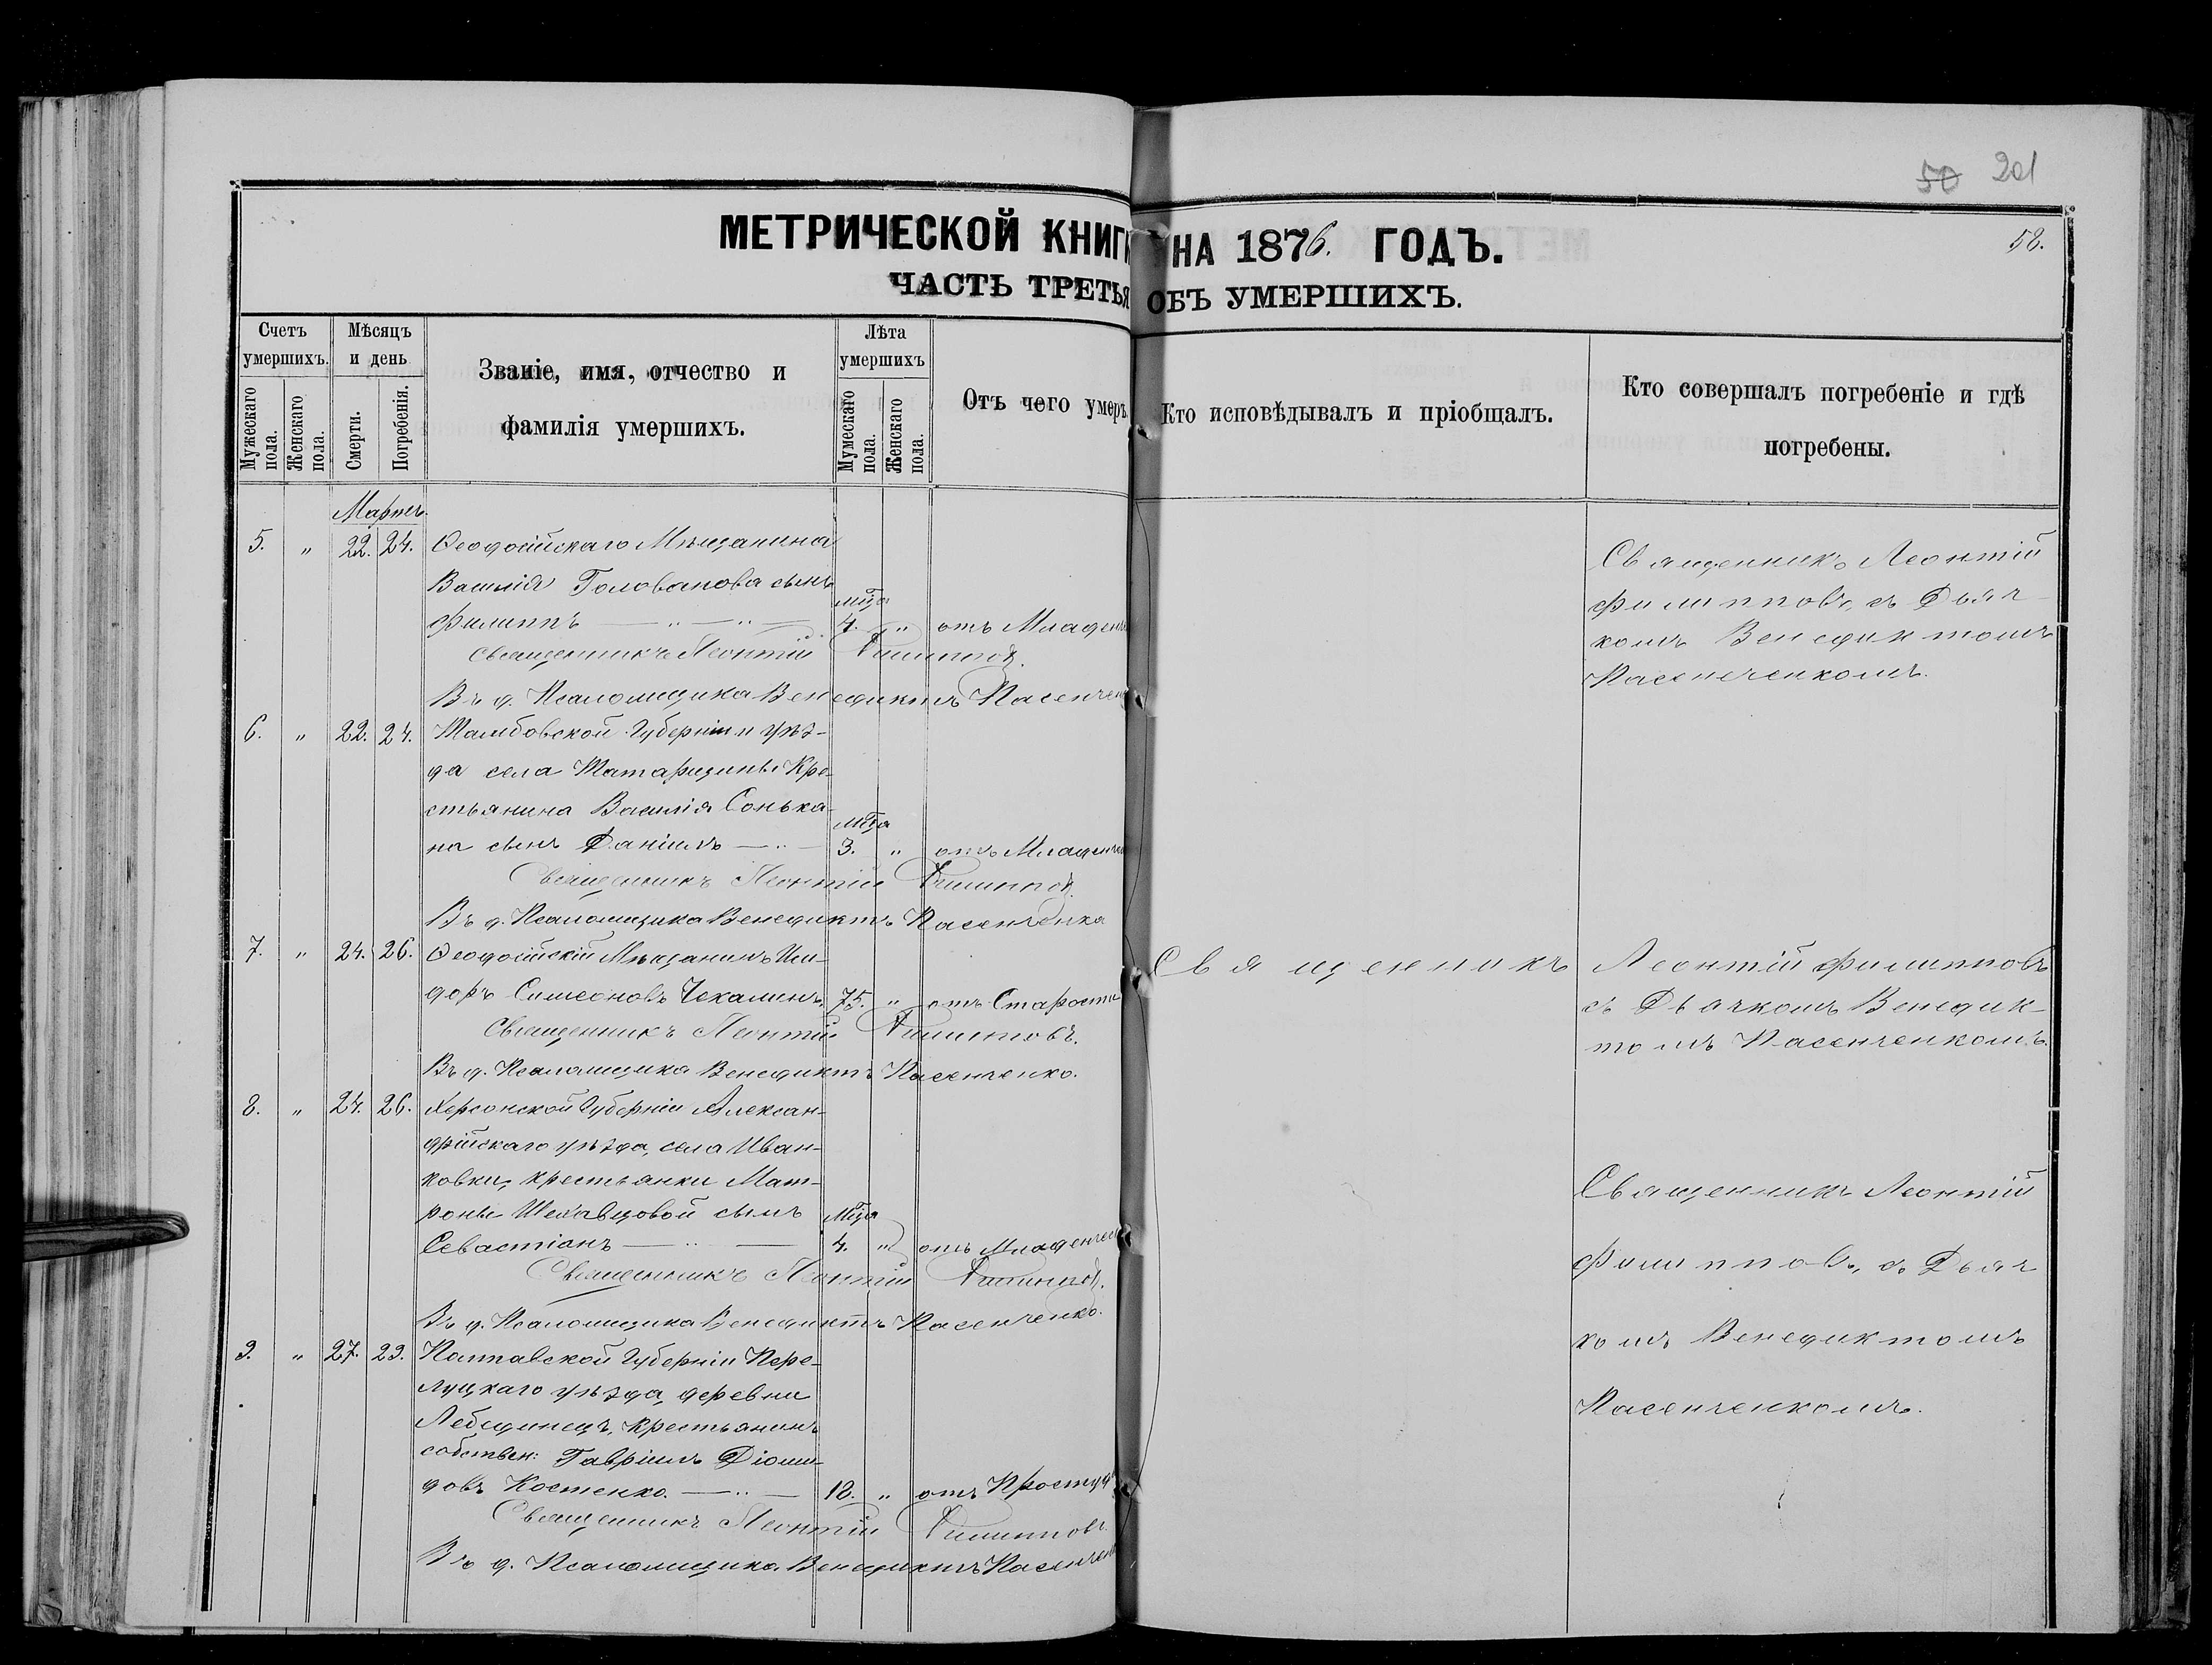 50 201
58.
МЕТРИЧЕСКОЙ КНИГИ НА 1876. ГОДЪ.
ЧАСТЬ ТРЕТЬЯ ОБЪ УМЕРШИХЪ.
Счетъ умершихъ.
Мужескаго пола.
Женскаго пола.
Мѣсяцъ и день
Смерти.
Погребенія.
Званіе, имя, отчество и
фамилія умершихъ.
Лѣта умершихъ
Мужескаго пола.
Женскаго пола.
Отъ чего умеръ.
Кто исповѣдывалъ и пріобщалъ.
Кто совершалъ погребеніе и гдѣ
погребены.
Мартъ.
5. " 22. 24. Ѳеодосійскаго Мѣщанина
Василія Голованова сынъ
мца
Филиппъ — " — " — 4. " отъ Младенч
Священникъ Леонтій Филиппов.
Въ д. Псаломщика Венедиктъ Пасенчен
Священникъ Леонтій
Филипповъ, съ Дьяч-
комъ Венедиктомъ
Пасенченкомъ.
6. " 22. 24. Тамбовской Губерніи и уѣз-
да села Татарщины Кре-
стьянина Василія Сонька-
мца
на сынъ Даніилъ — " — 3. " отъ Младенче
Священникъ Леонтій Филиппов.
Въ д. Псаломщика Венедиктъ Пасенченка
7. " 24. 26. Ѳеодосійскій Мѣщанинъ Иси-
доръ Симеоновъ Чекалинъ. 75. " отъ Старости
Священникъ Леонтій Филипповъ.
Въ д. Псаломщика Венедиктъ Пасенченко.
Священникъ Леонтій Филипповъ
съ Дьячкомъ Венедик-
томъ Пасенченкомъ.
8. " 24. 26. Херсонской Губерніи Алексан-
дрійскаго уѣзда, села Иван-
ковки, крестьянки Мат-
роны Шелавцовой сынъ мца
Севастіанъ — " — 4. " отъ Младенчес
Священникъ Леонтій Филиппов.
Въ д. Псаломщика Венедиктъ Пасенченко.
Священникъ Леонтій
Филиппов., съ Дьяч
комъ Венедиктомъ
Пасенченкомъ.
9. " 27. 29. Полтавской Губерніи Пере-
луцкаго уѣзда, деревни
Лебединецъ, крестьянинъ
собствен: Гавріилъ Діоми-
довъ Костенко. — " — 12. " отъ Простуд
Священникъ Леонтій Филипповъ
Въ д. Псаломщика Венедиктъ Пасенчен